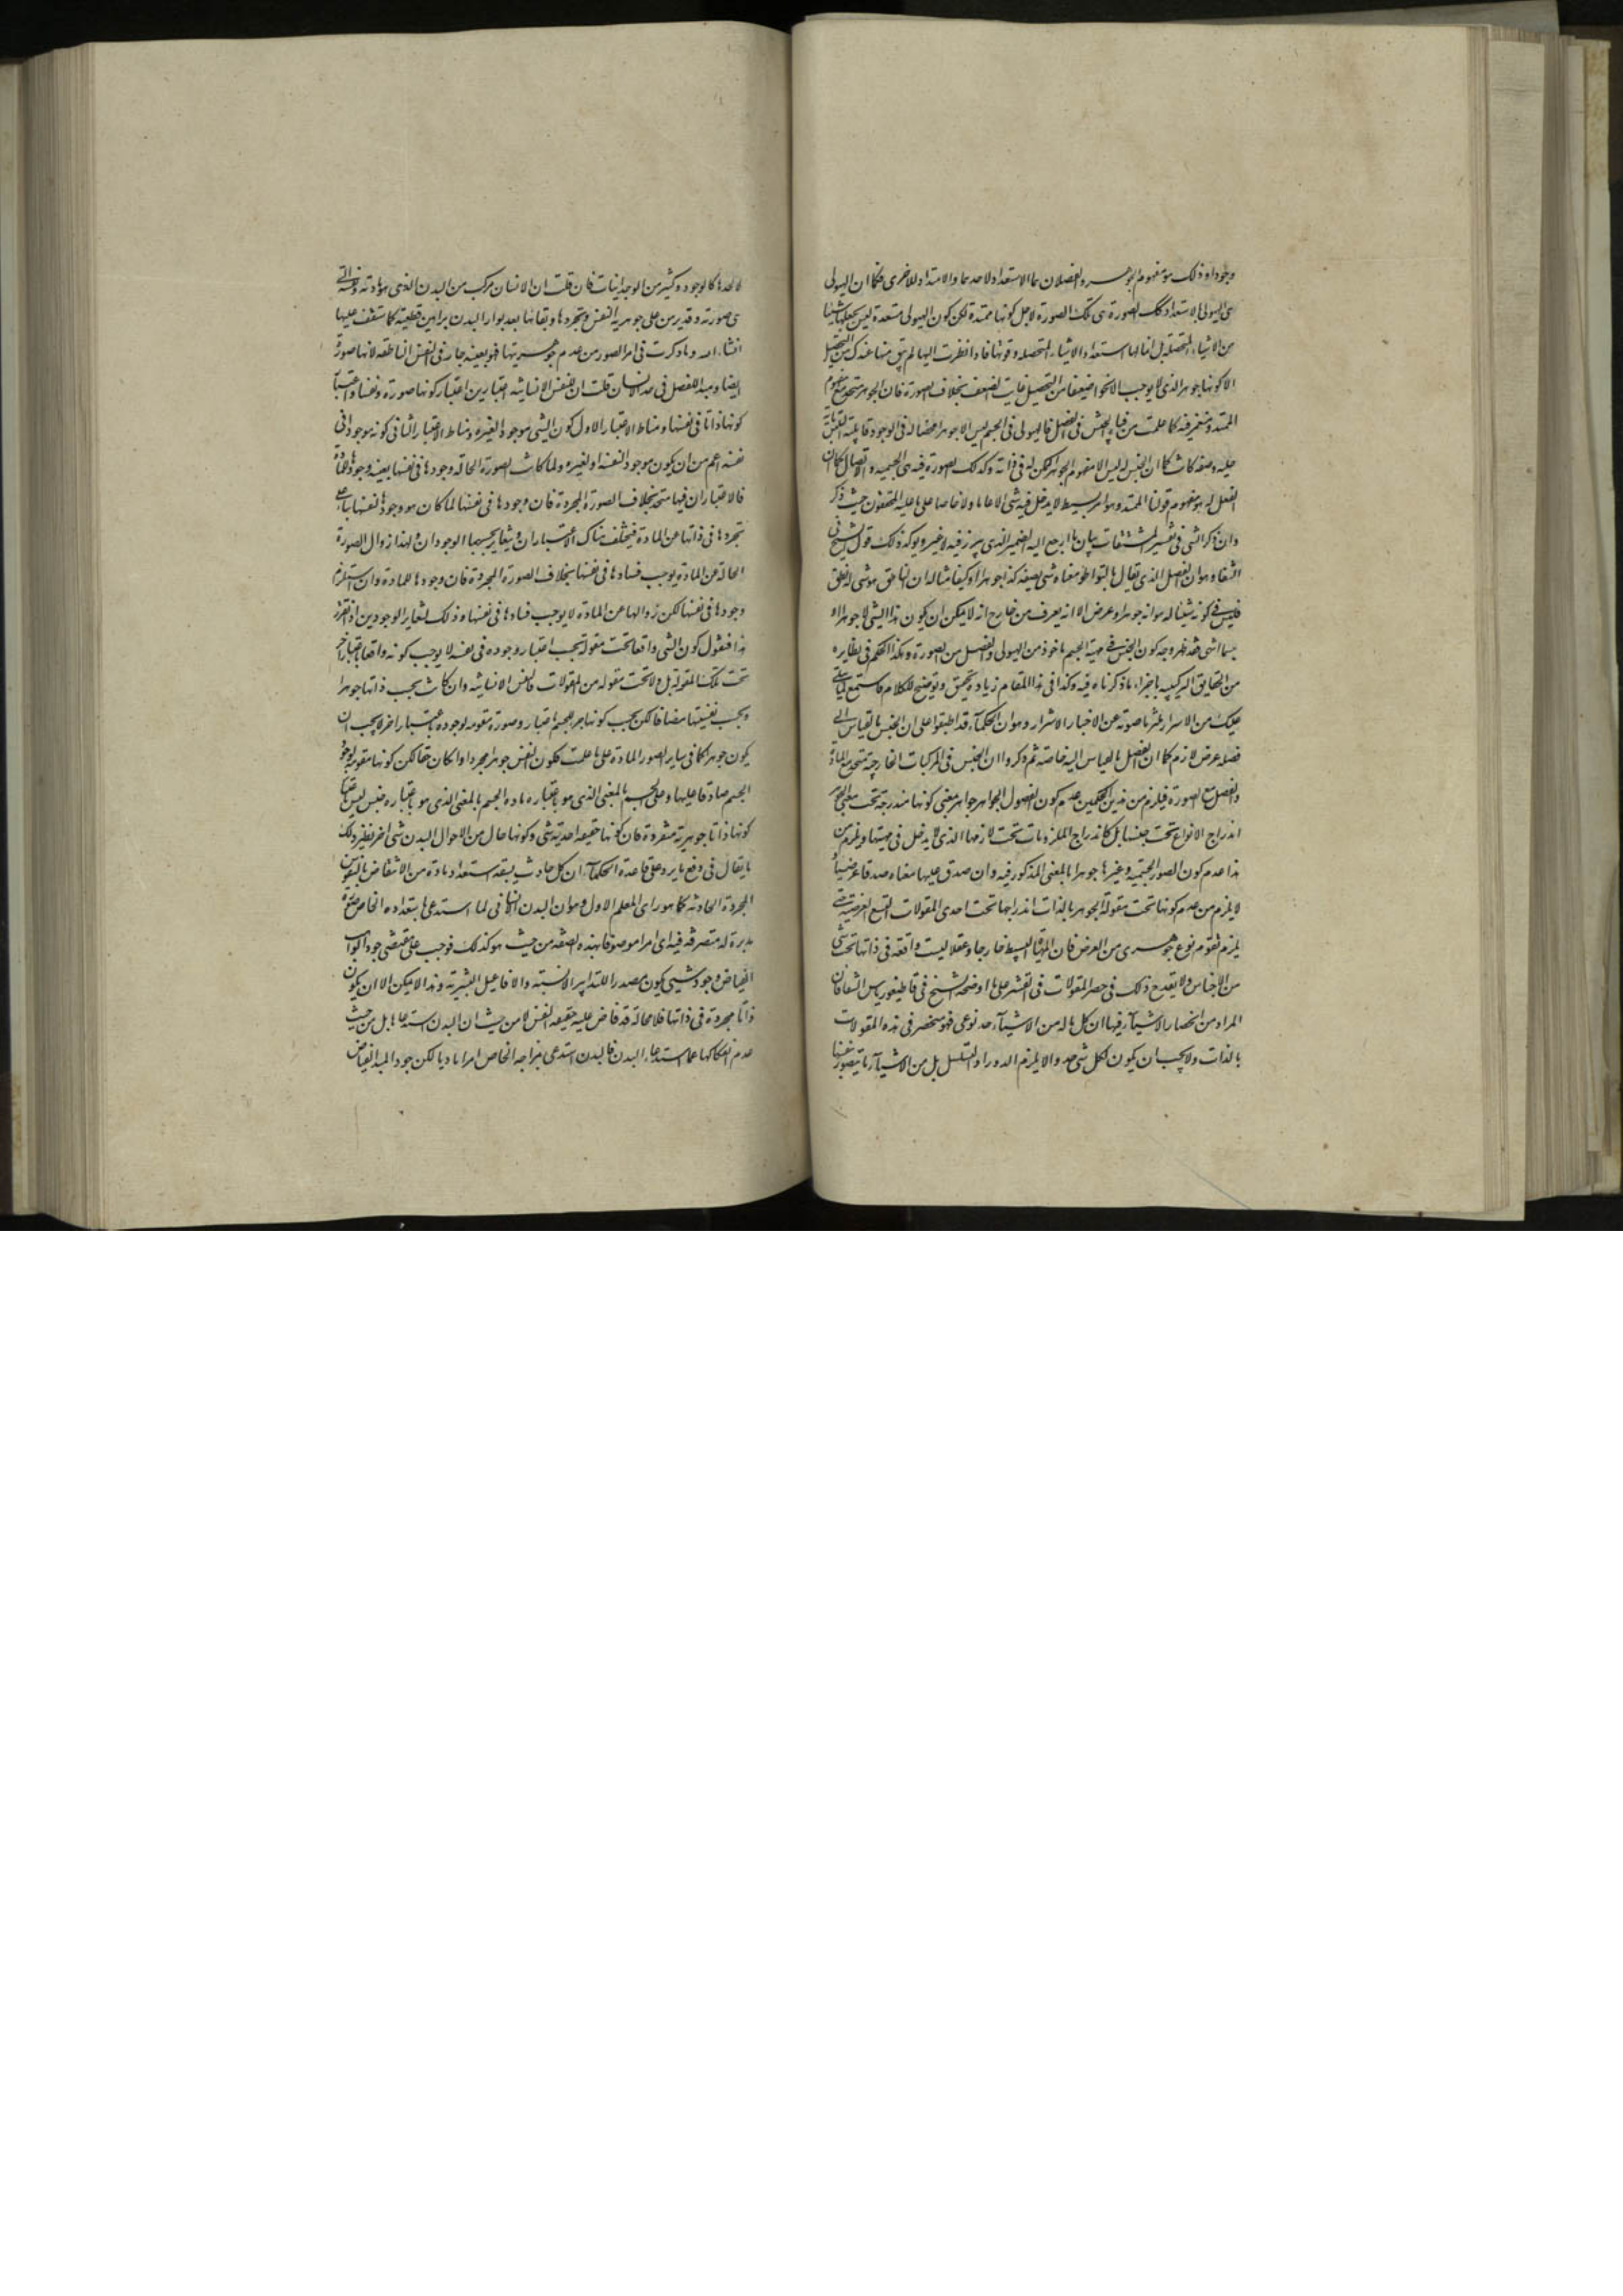 وجودا وذلك هو مفهوم الجوهر والفصلان هما الاستعداد لاحدهما والامتداد للاخرى فكما ان الهيولى
هى الهيولى بالاستعداد تلك الصورة هى تلك الصورة لاجل كونها ممتدة لكن كون الهيولى مستعدة ليس يجعلها شيئا
من الاشياء المتحصلة بل انما لها استعداد الاشياء المتحصلة وقوتها فاذا نظرت اليها لم يبق منها عندك من التحصيل
الا كونها جوهرا الذى لا يوجب الا نحوا ضعيفا من التحصيل غاية الضعف بخلاف الصورة فان الجوهر متحد مع مفهوم
الممتد ومنغمر فيه كما علمت من فناء الجنس فى الفصل فالهيولى فى الجسم ليس الا جوهرا محضا له فى الوجود قابلية التلبس باية
حلية وصفة كانت كما ان الجنس له ليس الا مفهوم الجوهر لكن له فى ذاته وكذلك الصورة فيه هى الجسمية والاتصال كما ان
الفصل له هو مفهوم قولنا الممتد وهو امر بسيط لا يدخل فيه شى لا عاما ولا خاصا على ما عليه المحققون حيث ذكر
وان ذكر الشى فى تفسير المشتقات بيان لما رجع اليه الضمير الذى يبرز فيه لا غير ويؤكد ذلك قول الشيخ فى
الشفا وهو ان الفصل الذى يقال بالتواطؤ معناه شى بصفة كذا جوهرا او كيفا مثاله ان الناطق هو شى له نطق
فليس فى كونه شيئا له نطق هو انه جوهر او عرض الا انه يعرف من خارج انه لا يمكن ان يكون هذا الشى الا جوهرا او
جسما انتهى فقد ظهر وجه كون الجنس فى مهية الجسم ماخوذ من الهيولى والفصل من الصورة وهكذا الحكم فى نظايره
من الحقايق التركيبية باجزاء ما ذكرناه فيه وكذا فى هذا المقام زيادة تحقيق وتوضيح للكلام فاستمع لما يتلى
عليك من الاسرار ملتزما صونه عن الاخبار الاشرار وهو ان الحكماء قد اطبقوا على ان الجنس بالقياس الى
فصله عرض لازم كما ان الفصل بالقياس اليه خاصة ثم ذكروا ان الجنس فى المركبات الخارجية متحد مع المادة
والفصل مع الصورة فيلزم من هذين الحكمين عدم كون الفصول الجواهر جواهر بمعنى كونها مندرجة تحت معنى الجوهر
اندراج الانواع تحت جنسها بل كاندراج الملزومات تحت لازمها الذى لا يدخل فى مهيتها ويلزم من
هذا عدم كون الصور الجسمية وغيرها جوهرا بالمعنى المذكور فيه وان صدق عليها معناه صدقا عرضيا و
لا يلزم من عدم كونها تحت مقولة الجوهر بالذات اندراجها تحت احدى المقولات التسع العرضية حتى
يلزم تقوم نوع جوهرى من العرض فان المهيات البسيطة خارجا وعقلا ليست واقعة فى ذاتها تحت شى
من الاجناس ولا يقدح ذلك فى حصر المقولات فى العشر على ما اوضحه الشيخ فى قاطيغورياس الشفا فان
المراد من انحصار الاشياء فيها ان كل ماله من الاشياء حد نوعى فهو منحصر فى هذه المقولات
بالذات ولا يجب ان يكون لكل شى حد والا يلزم الدور او التسلسل بل من الاشياء ما يتصور بنفسها
لا بحدها كالوجود وكثير من الوجدانيات فان قلت ان الانسان مركب من البدن الذى هو مادته ونفسه التى
هى صورته وقد برهن على جوهرية النفس وتجردها وبقائها بعد بوار البدن ببراهين قطعية كما ستقف عليها
انشاء الله وما ذكرت فى امر الصور من عدم جوهريتها فهو بعينه جار فى النفس الناطقة لانها صورة
ايضا ومبدء للفصل فى حد الانسان قلت ان للنفس الانسانية اعتبارين اعتبار كونها صورة ونفسا واعتبار
كونها ذاتا فى نفسها ومناط الاعتبار الاول كون الشى موجودا لغيره ومناط الاعتبار الثانى كونه موجودا فى
نفسه اعم من ان يكون موجودا لنفسه او لغيره ولما كانت الصورة الحالة وجودها فى نفسها بعينه وجودها للمادة
فالاعتباران فيها متحد بخلاف الصورة المجردة فان وجودها فى نفسها لما كان هو وجودها لنفسها بناء على
تجردها فى ذاتها عن المادة فيختلف هناك الاعتباران ويتغاير بحسبهما الوجودان ولهذا زوال الصورة
الحالة عن المادة يوجب فسادها فى نفسها بخلاف الصورة المجردة فان وجودها للمادة وان استلزم
وجودها فى نفسها لكن زوالها عن المادة لا يوجب فسادها فى نفسها وذلك لتغاير الوجودين اذا تقرر
هذا فنقول كون الشى واقعا تحت مقولة بحسب اعتبار وجوده فى نفسه لا يوجب كونه واقعا باعتبار اخر
تحت تلك المقولة بل ولا تحت مقولة من المقولات فالنفس الانسانية وان كانت بحسب ذاتها جوهرا
وبحسب نفسيتها مضافا لكن بحسب كونها جزءا للجسم اعتبار وصورة مقومة لوجوده باعتبار اخر لا يجب ان
يكون جوهرا كما فى ساير الصور المادة على ما علمت فكون النفس جوهرا مجردا وان كان حقا لكن كونها مقومة لوجود
الجسم صادقا عليها وعلى الجسم بالمعنى الذى هو باعتباره مادة الجسم بالمعنى الذى هو باعتباره جنس ليس باعتبار
كونها ذاتا جوهرية منفردة فان كونها حقيقة احدية شى وكونها حال من الاحوال البدن شى اخر نظير ذلك
ما يقال فى دفع ما يرد على قاعدة الحكماء ان كل حادث يسبقه استعداد مادة من الانتقاض بالنفوس
المجردة الحادثة كما هو راى المعلم الاول وهو ان البدن الانسانى لما استدعى باستعداده الخاص صورة
مدبرة له متصرفة فيه اى امرا موصوفا بهذه الصفة من حيث هو كذلك فوجب على مقتضى جود الواهب
الفياض وجود شى يكون مصدرا للتدابير الانسية والافاعيل البشرية وهذا لا يمكن الا ان يكون
ذاتا مجردة فى ذاتها فلا محالة قد فاض عليه حقيقة النفس لا من حيث ان البدن استدعاها بل من حيث
عدم انفكاكها عما استدعاه البدن فالبدن استدعى بمزاجه الخاص امرا ماديا لكن جود المبدا الفياض